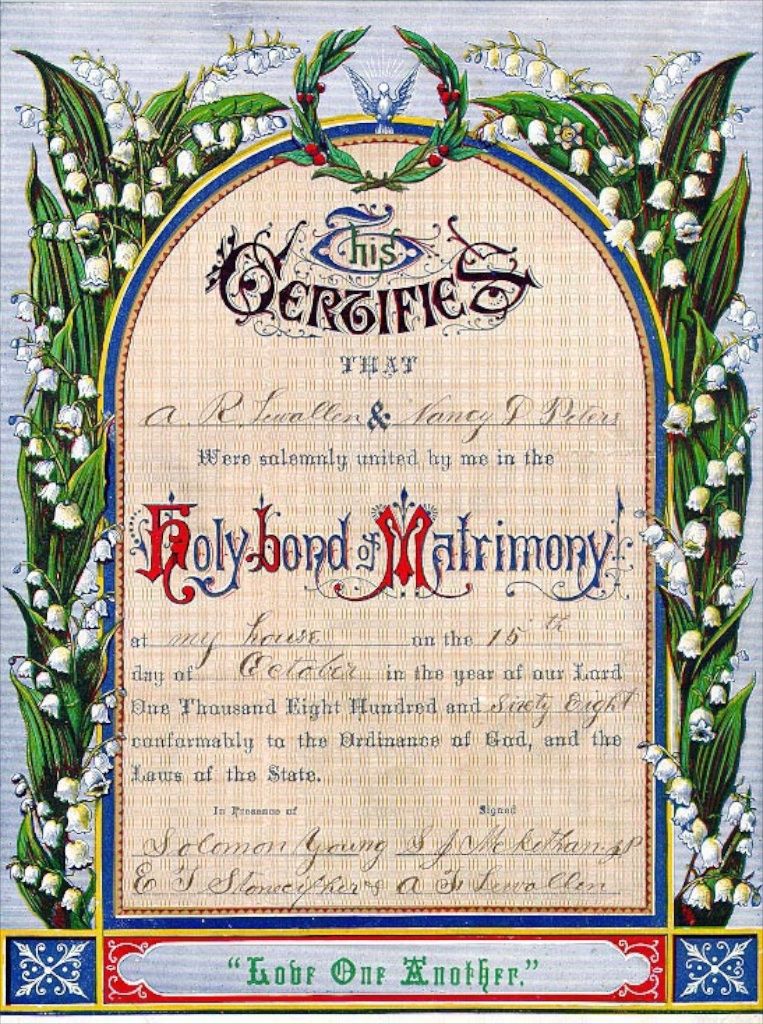 This
Certifies
THAT
A. R. Lewallen & Nancy D Peters
Were solemnly united by me in the
Holy bond of Matrimony
at my house on the 15th
day of October in the year of our Lord
One Thousand Eight Hundred and Sixty Eight
conformably to the Ordinance of God, and the
Laws of the State.
In Presence of Signed
Solomon Young S J
E J Stonecypher A F Lewallen
"Love One Another."